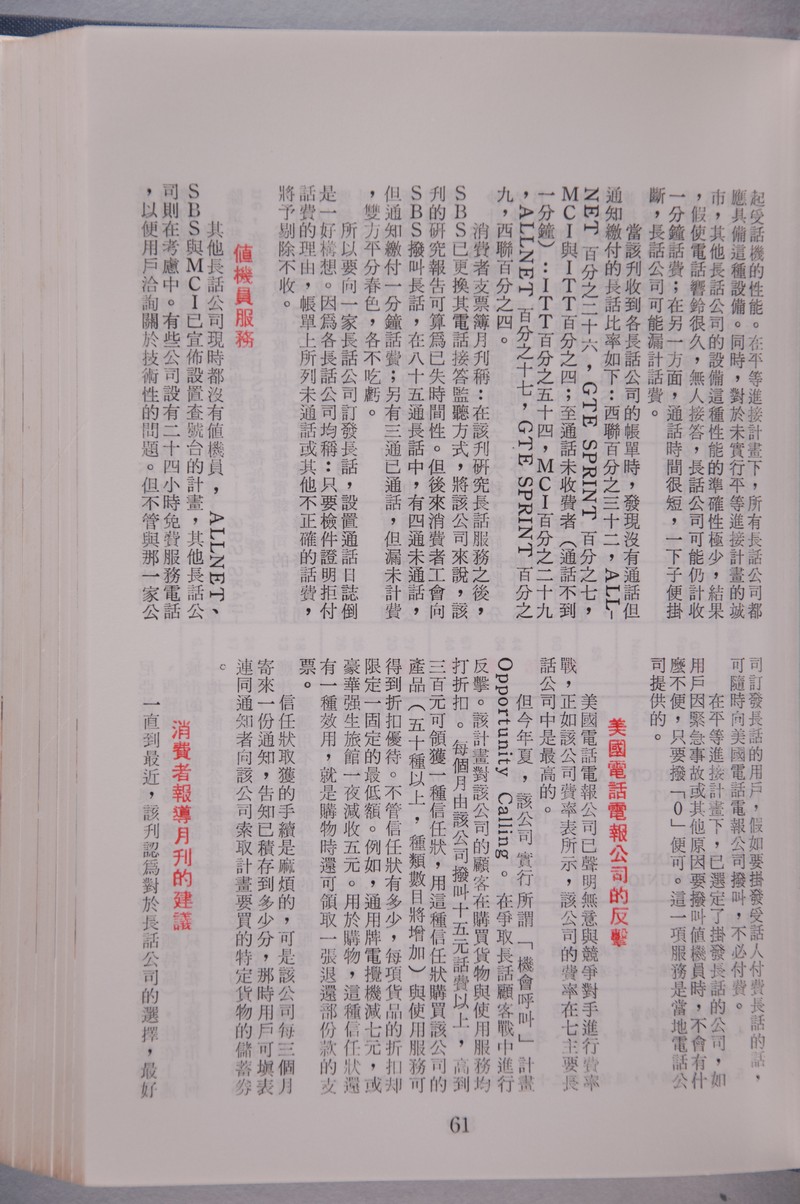 起受話機的性能。在平等進接計畫下，所有長話公司都
應具備這種設備。同時，對於未實行平等進接計畫的城
市，其他長話公司的設備這種性能的準確性極少，結果
，假使電話響鈴很久，無人接答，長話公司可能仍計收
一分鐘話費；在另一方面，通話時間很短，一下子便掛
斷，長話公司可能漏計話費。
當該刊收到各長話公司的帳單時，發現沒有通話但
通知繳付的長話比率如下：西聯百分之三十二，ALL-
NET 百分之二十六，GTE SPRINT 百分之七，
MCI與ITT百分之四；至通話未收費者（通話不到
一分鐘）：ITT百分之五十四，MCI百分之二十九
，ALLNET 百分之十七，GTE SPRINT 百分之
九，西聯百分之四。
消費者支票簿月刊稱：在該刊研究長話服務之後，
SBS已更換其電話接答監聽方式，將該公司來說，該
刊的研究報告可算爲已失時間性。但後來消費者工會向
SBS撥叫長話，在八十五通長話中，有四通未通話，
但通知繳付一分鐘話費；另有三通已通話，但漏未計費
，雙方平分春色，各不吃虧。
所以要向一家長話公司訂發長話，設置通話日誌倒
是一好構想。因爲各長話公司均稱：只要檢件證明拒付
話費的理由，帳單上所列未通話或其他不正確的話費，
將予剔除不收。
値機員服務
其他長話公司現時都沒有値機員，ALLNET、
SBS與MCI已宣佈設置查號台的計畫，其他長話公
司則在考慮中。有些公司設有二十四小時免費服務電話
，以便用戶洽詢關於技術性的問題。但不管與那一家公
司訂發長話的用戶，假如要掛發受話人付費長話的話，
可隨時向美國電話電報公司撥叫，不必付費。
在平等進接計畫下，已選定了掛發長話的公司，如
用戶因緊急事故或其他原因要撥叫値機員時，不會有什
麼不便，只要撥「0」便可。這一項服務是當地電話公
司提供的。
美國電話電報公司的反擊
美國電話電報公司已聲明無意與競爭對手進行費率
戰，正如該公司費率表所示，該公司的費率在七主要長
話公司中是最高的。
但今年夏，該公司實行所謂「機會呼叫」計畫
Opportunity Calling。在爭取長話顧客戰中進行
反擊。該計畫對該公司的顧客在購買貨物與使用服務均
打折扣。每個月由該公司撥叫十五元話費以上，高到
三百元可領獲一種信任狀，用這種信任狀購買該公司的
產品（五十種以上，種類數目將增加）與使用服務可
得到折扣優待。不管信任狀有多少，每項貨品的折扣却
限定一固定的最低額。例如，通用牌電攪機減七元，或
豪華强生旅館一夜減收五元。用於購物，這種信任狀還
有一種效用，就是購物時還可領取一張退還部份款的支
票。
信任狀取獲的手續是麻煩的，可是該公司每三個月
寄來一份通知，告知已積存到多少分，那時用戶可塡表
連同通知者向該公司索取計畫要買的特定貨物的儲蓄券
。
消費者報導月刊的建議
一直到最近，該刊認爲對於長話公司的選擇，最好
61